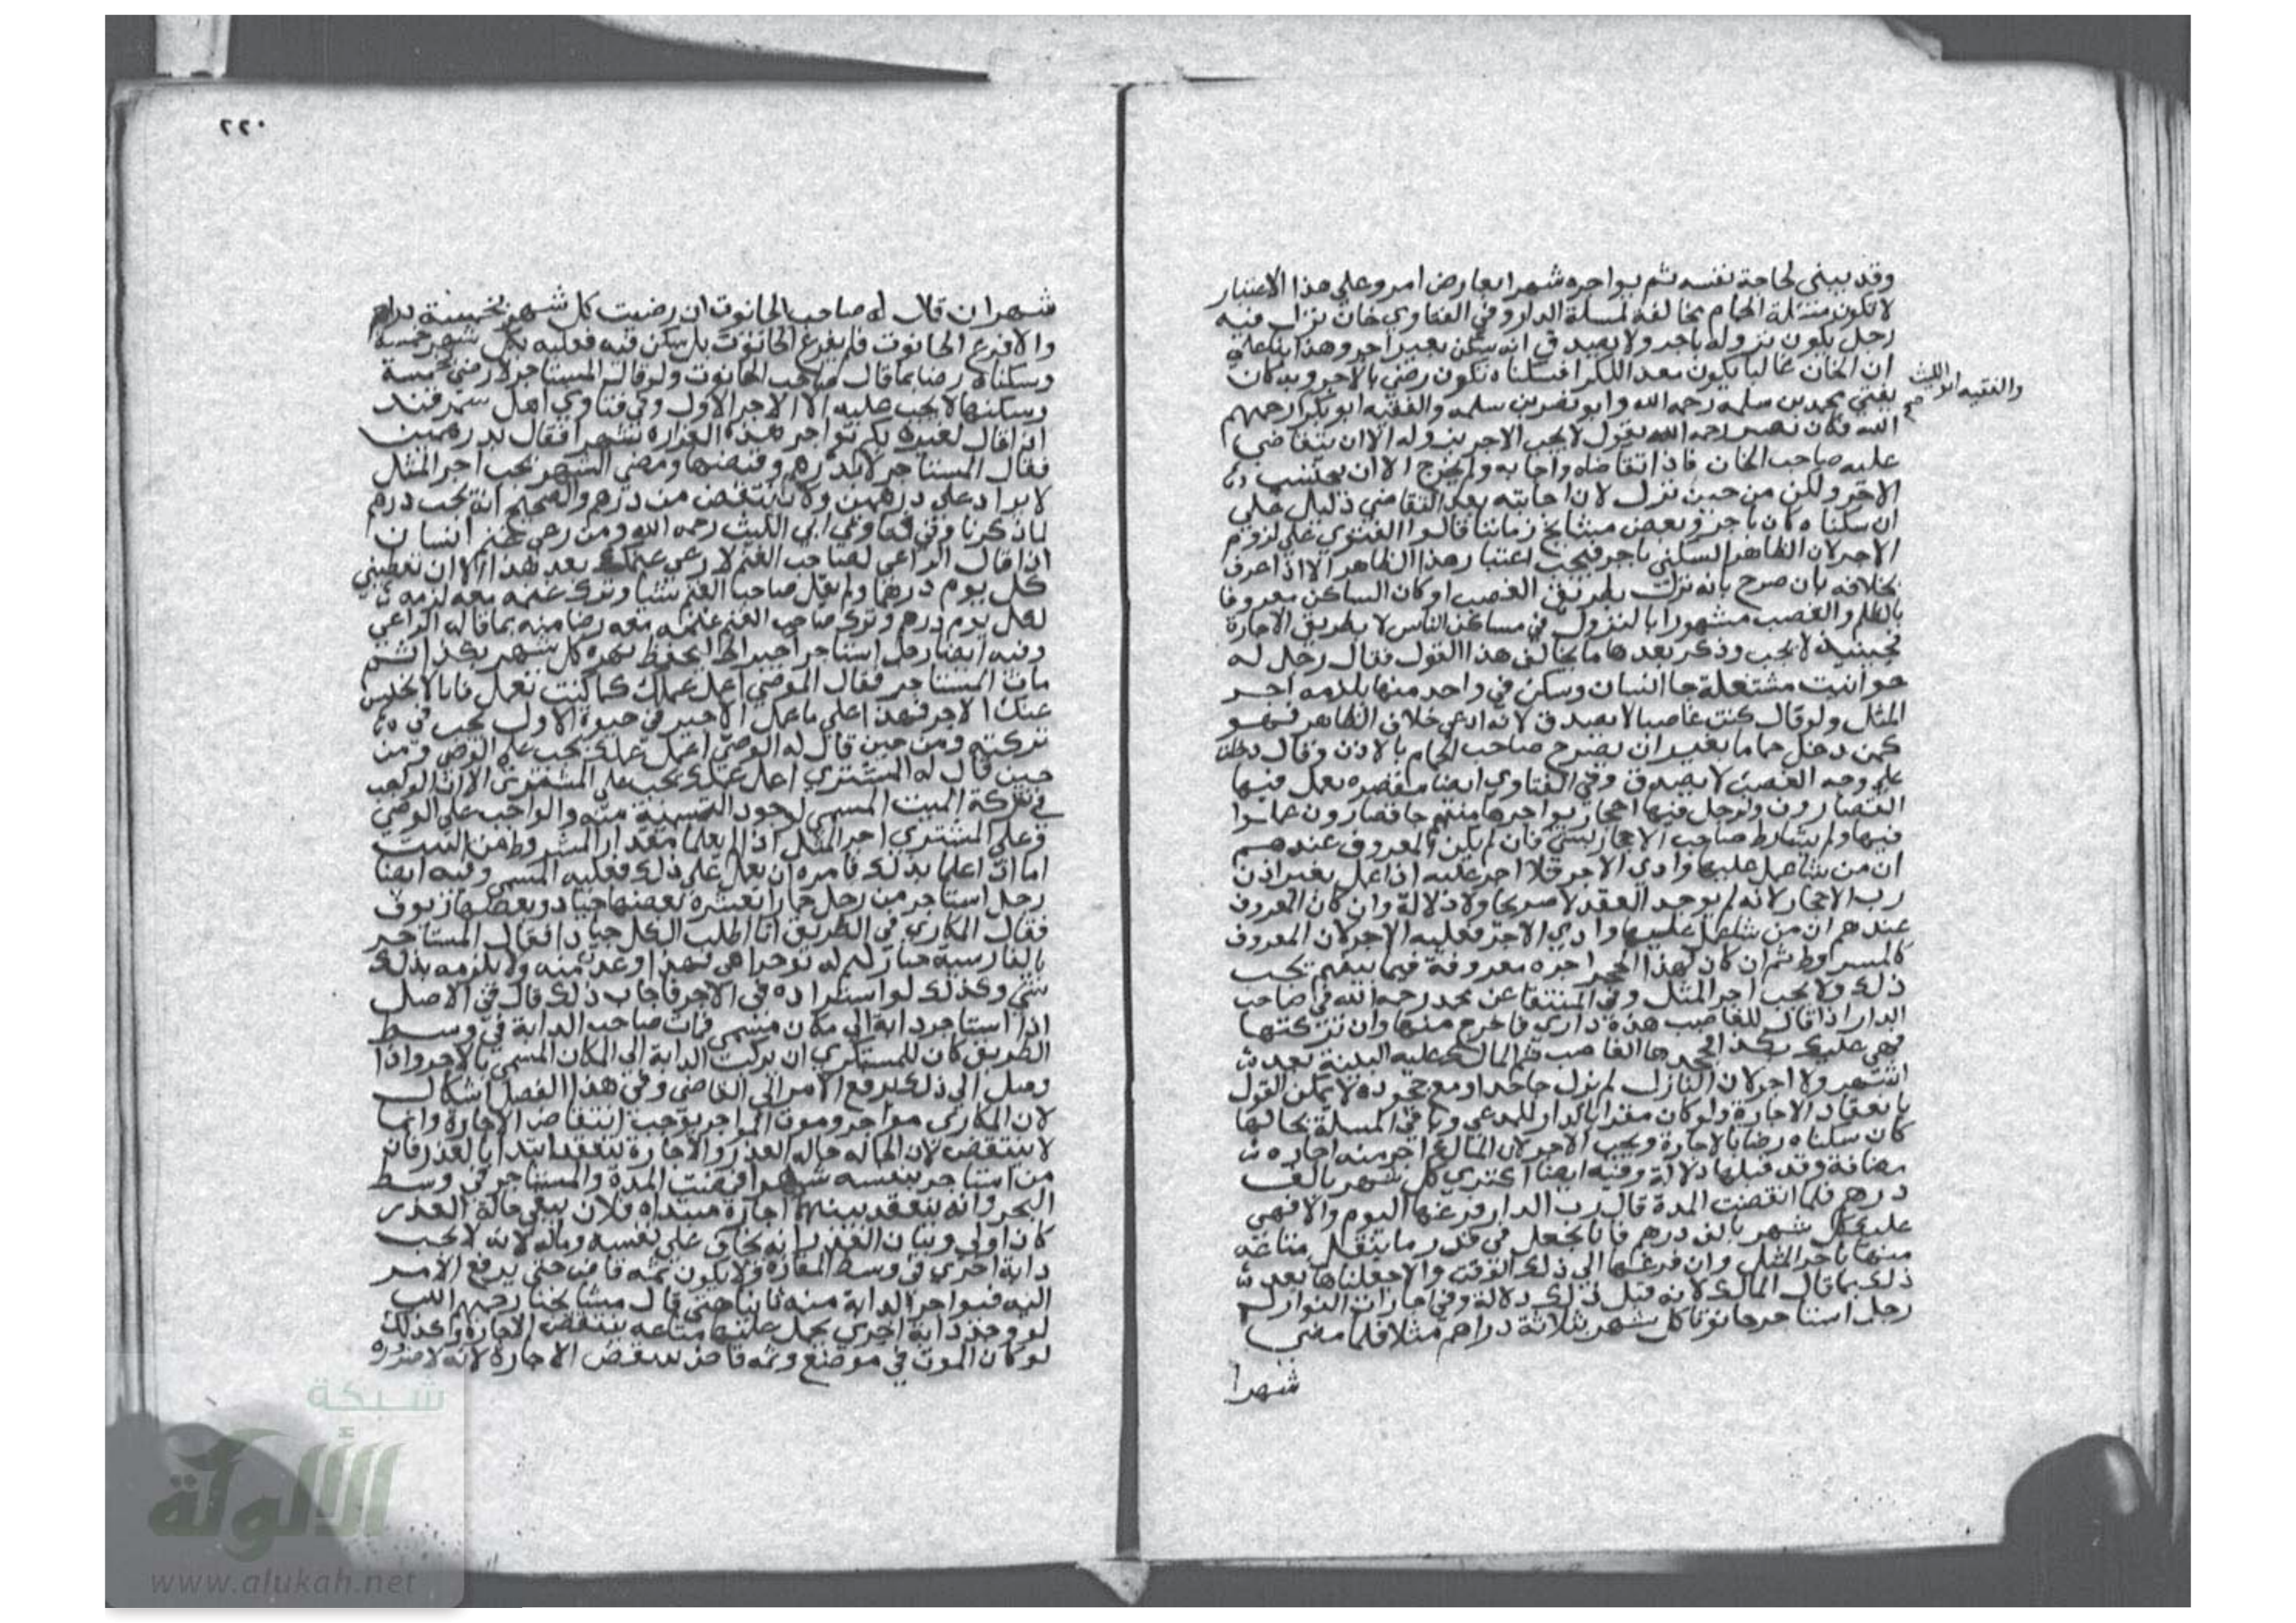 وقد يبني لحاجة نفسه ثم يواجره شهرا بعارض امر وعلي هذا الاعتبار
لا تكون مسئلة الحمام مخالفة لمسلة الدار وفي الفتاوي خان نزل فيه
رجل يكون نزوله باجر ولا يصدق انه سكن بغير اجر وهذا بنا علي
ان الخان غالبا يكون معد للكرا فسكناه تكون رضي بالاجر وبه كان
والفقيه ابو الليث صح
يفتي محمد بن سلمه رحمه الله وابو نصر بن سلمه والفقيه ابو بكر رحمهم
الله وكان نصير رحمه الله يقول لا يجب الاجر بنزوله الا ان يتقاضي
عليه صاحب الخان فاذا تقاضاه واجابه ولم يخرج الا ان يحتسب
الاجر ولكن من حين نزل لان اجابته بعد التقاضي دليل علي
ان سكناه كان باجر وبعض مشايخ زماننا قالوا الفتوي علي لزوم
الاجر لان الظاهر السكني باجر فيجب اعتبار هذا الظاهر الا اذا عرف
بخلافه بان صرح بانه نزل بطريق الغصب او كان الساكن معروفا
بالظلم والغصب مشهورا بالنزول في مساكن الناس لا بطريق الاجارة
فحينيذ لا يجب وذكر بعدها ما يخالف هذا القول فقال رجل له
حوانيت مشتغلة جا انسان وسكن في واحد منها يلزمه اجر
المثل ولو قال كنت غاصبا لا يصدق لانه ادعي خلاف الظاهر فهو
كمن دخل حماما بغير ان يصرح صاحب الحمام بالاذن وقال دخلت
علي وجه الغصب لا يصدق وفي الفتاوي ايضا مقصره يعمل فيها
القصارون ولرجل فيها احجار يواجرها منهم جا قصارون عملوا
فيها ولم يشارط صاحب الاحجار بشي فان لم يكن المعروف عندهم
ان من شا عمل عليها وادي الاجر فلا اجر عليه اذا عمل بغير اذن
رب الاحجار لانه لم يوجد العقد لا صريحا ولا دلالة وان كان المعروف
عندهم ان من شا عمل عليها وادي الاجر فعليه الاجر لان المعروف
كالمشروط ثم ان كان لهذا الحجر اجره معروفة فيما بينهم يجب
ذلك ولا يجب اجر المثل وفي المنتقا عن محمد رحمه الله في صاحب
الدار اذا قال للغاصب هذه داري فاخرج منها وان تركتها
فهي عليك بكذا فجحدها الغاصب ثم المالك عليه البينة بعد
اشهر ولا اجر لان النازل لم يزل جاحدا ومع جحوده لا يمكن القول
بانعقاد الاجارة ولو كان مقرا بالدار للمدعي وباقي المسلة بحالها
كان سكناه رضا بالاجارة ويجب الاجر لان المالك اجر منه اجاره
مضافة وقد قبلها دلالة وفيه ايضا اكتري كل شهر بالف
درهم فلما انقضت المدة قال رب الدار فرغها اليوم والا فهي
عليك كل شهر بالف درهم فانا نجعل في قدر ما ينقل متاعه
منها باجر المثل وان فرغها الي ذلك الوقت والا جعلناها بعد
ذلك بما قال المالك لانه قبل ذلك دلالة وفي اجارات النوازل
رجل استاجر حانوتا كل شهر بثلاثة دراهم مثلا فلما مضي
شهرا
٢٢٠
شهران قال له صاحب الحانوت ان رضيت كل شهر بخمسة دراهم
والا فرغ الحانوت فلم يفرغ الحانوت بل سكن فيه فعليه بكل شهر خمسة
وسكناه رضا بما قال صاحب الحانوت ولو قال المستاجر لا رضي بخمسة
وسكنها لا يجب عليه الا الاجر الاول وفي فتاوي اهل سمرقند
اذا قال لغيره بكم تواجر هذه الغراره شهرا فقال بدرهمين
فقال المستاجر لا بل بدرهم وقبضها ومضي الشهر يجب اجر المثل
لا يزاد علي درهمين ولا ينتقض من درهم والصحيح انه يجب درهم
لما ذكرنا وفي فتاوي ابي الليث رحمه الله ومن رعي غنم انسان
اذا قال الراعي لصاحب الغنم لا رعي غنمك بعد هذا الا ان تعطيني
كل يوم درهما ولم يقل صاحب الغنم شيئا وترك غنمه معه لزمه
لكل يوم درهم وترك صاحب الغنم غنمه معه رضا منه بما قاله الراعي
وفيه ايضا رجل استاجر اجيرا لحفظ نهره كل شهر بكذا ثم
مات المستاجر فقال الوصي اعمل عملك كما كنت تعمل فانا لا نحبس
عنك الاجر فهذا علي ما عمل الاجير في حيوة الاول يجب في
تركته ومن حين قال له الوصي اعمل عملك يجب علي الوصي ومن
حين قال له المشتري اعمل عملك يجب علي المشتري الا ان الواجب
في تركة الميت المسمي لوجود التسمية منه والواجب علي الوصي
وعلي المشتري اجر المثل اذا لم يعلما مقدار المشروط من الميت
اما اذا علما بذلك فامره ان يعمل علي ذلك فعليه المسمي وفيه ايضا
رجل استاجر من رجل حمارا بعشره بعضها جياد وبعضها زيوف
فقال المكاري في الطريق انا اطلب الكل جيادا فقال المستاجر
بالفارسية فهذا وعد منه ولا يلزمه بذلك
شي وكذلك لو استزاده في الاجر فاجاب ذلك قال في الاصل
اذا استاجر دابة الي مكان مسمي فمات صاحب الدابة في وسط
الطريق كان للمستكري ان يركب الدابة الي المكان المسمي بالاجر واذا
وصل الي ذلك يرفع الامر الي القاضي وفي هذا الفصل اشكال
لان المكاري مواجر وموت المواجر يوجب انتقاض الاجارة وانما
لا ينتقض لان الحاله حاله العذر والاجارة تنعقد ابتدا بالعذر فان
من استاجر بنفسه شهرا فمضت المدة والمستاجر في وسط
البحر وانه ينعقد بينهما اجارة مبتداه فلان يبقي حالة العذر
كان اولي وبيان العذر انه يخاف علي نفسه وماله لانه لا يجب
دابة اخري في وسط المفازه ولا يكون ثمه قاض حتي يرفع الامر
اليه فيواجر الدابة منه ثانيا حتي قال مشايخنا رحمهم الله
لو وجد دابة اخري يحمل عليها متاعه ينتقض الاجارة وكذلك
لو كان الموت في موضع وثمه قاض ينتقض الاجارة لانه لا ضروره
شبكة
الألوكة
www.alukah.net